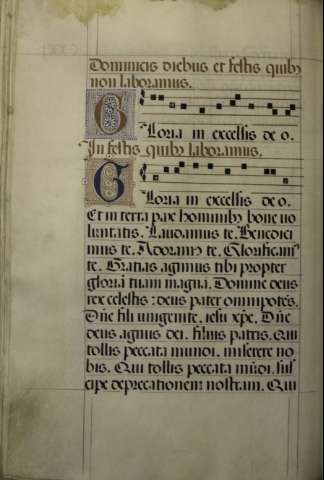 Dominicis diebus et festis quibꝫ
non laboramus.
Gloria in excelsis deo.
In festis quibꝫ laboramus.
Gloria in excelsis deo.
Et in terra pax hominibꝫ bone uo
luntatis. Laudamus te. Benedici
mus te. Adoramꝰ te. Glorificamꝰ
te. Gratias agimus tibi propter
gloriā tuam magnā. Domine deus
rex celestis: deus pater omnipotēs.
Dn̄e fili unigenite. iesu xp̄e. Dn̄e
deus agnus dei. filius patris. Qui
tollis peccata mundi. miserere no
bis. Qui tollis peccata mūdi. sus
cipe deprecationem nostram. Qui